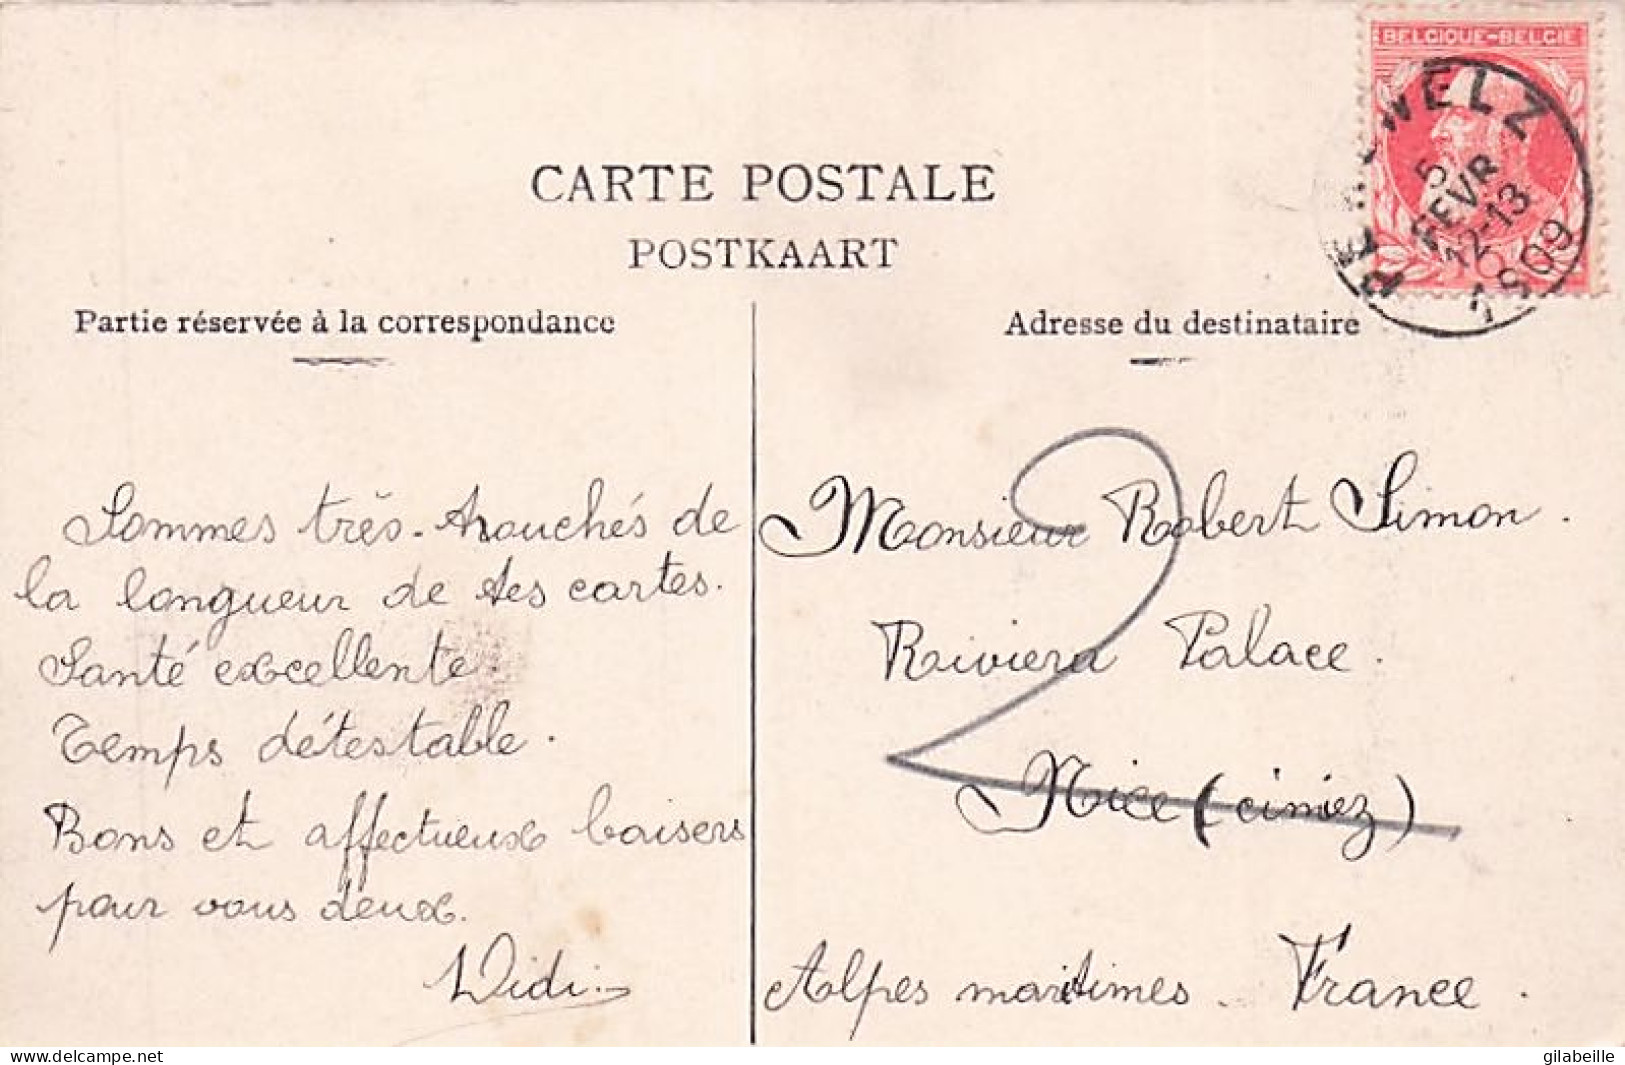 BELGIQUE-BELGIE
5
FEVR
12-13
1909
CARTE POSTALE
POSTKAART
Partie réservée à la correspondance
Sommes très-touchés de
la longueur de tes cartes.
Santé excellente.
Temps détestable.
Bons et affectueux baisers
pour vous deux.
Didi.
Adresse du destinataire
Monsieur Robert Simon.
Riviera Palace.
Nice (cimiez)
Alpes maritimes. France.
2
delcampe.net
gilabeille